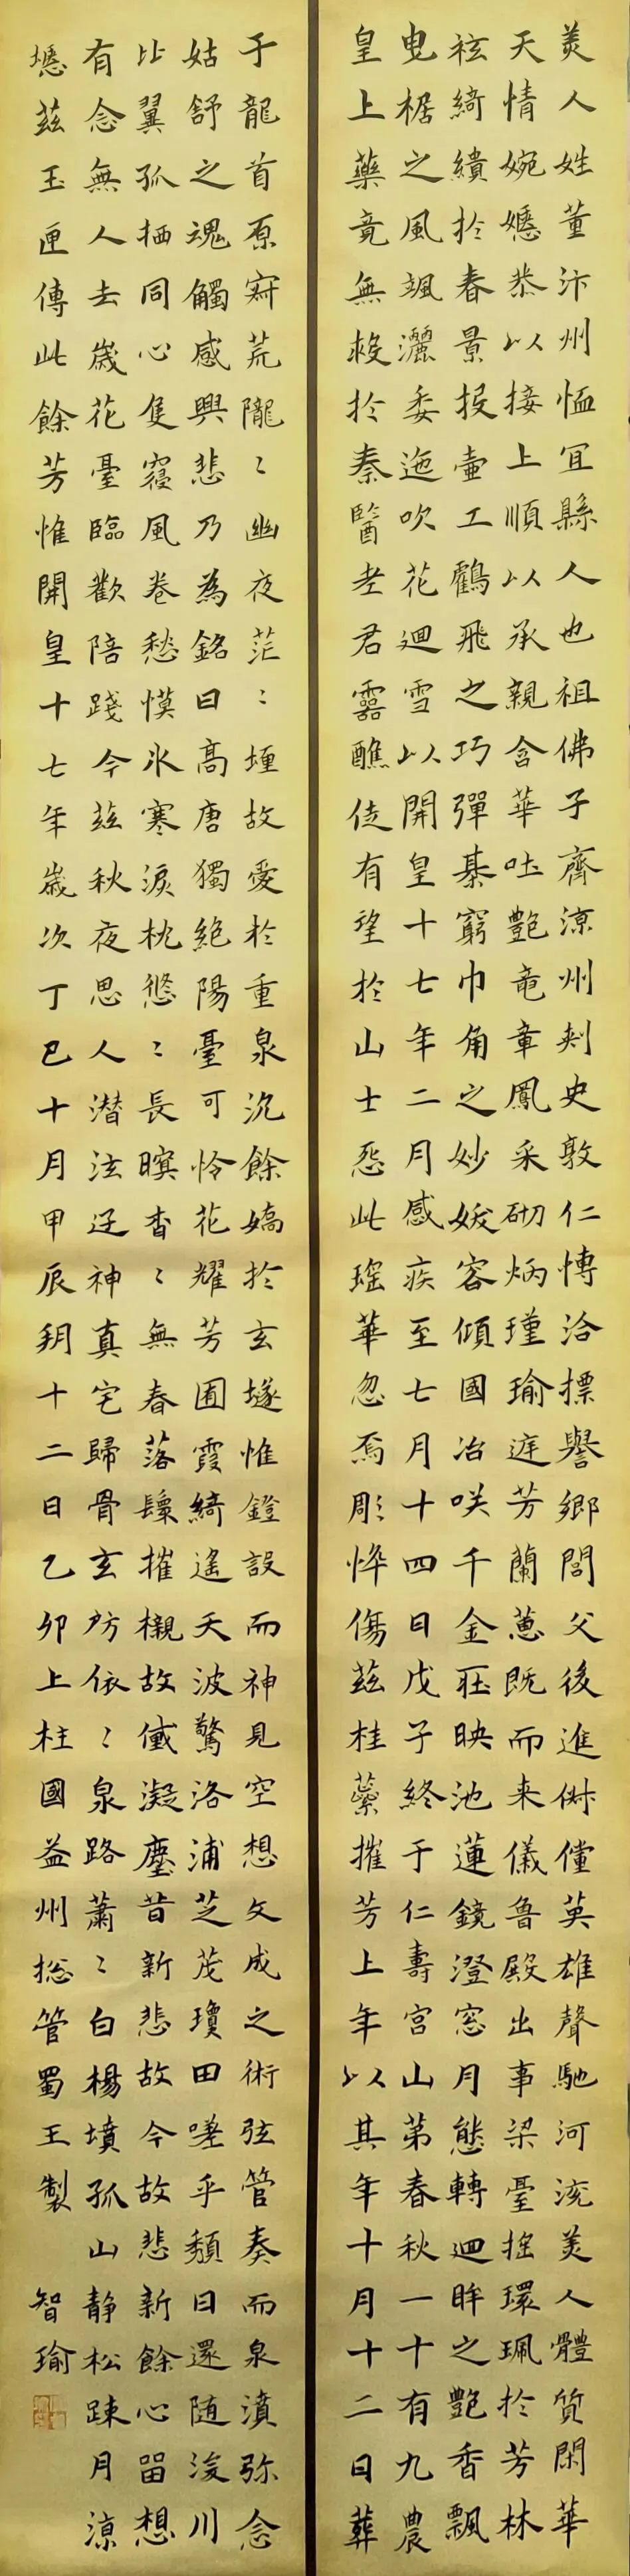 美人姓董汴州恤宜縣人也祖佛子齊涼州刺史敦仁博洽摽譽鄉閭父後進俶儻英雄聲馳河渷美人體質閑華
天情婉嫕恭以接上順以承親含華吐艷竜章鳳采砌炳瑾瑜庭芳蘭蕙既而来儀魯殿出事梁臺搖環珮於芳林
袨綺繢於春景投壺工鶴飛之巧彈棊窮巾角之妙妖容傾國冶咲千金莊映池蓮鏡澄窓月態轉迴眸之艷香飄
曳裾之風颯灑委迤吹花迴雪以開皇十七年二月感疾至七月十四日戊子終于仁壽宮山第春秋一十有九農
皇上藥竟無救於秦醫老君靈醮徒有望於山士怨此瑤華忽焉彫悴傷茲桂蘂摧芳上年以其年十月十二日葬
于龍首原寂荒隴〻幽夜茫〻埋故愛於重泉沉餘嬌於玄墜惟鐙設而神見空想文成之術弦管奏而泉濆弥念
姑舒之魂觸感興悲乃為銘曰高唐獨絕陽臺可怜花耀芳囿霞綺遙天波驚洛浦芝茂瓊田嗟乎頹日還随浚川
比翼孤栖同心隻寢風卷愁慔氷寒淚枕悠〻長暝杳〻無春落鬟摧櫬故黛凝塵昔新悲故今故悲新餘心留想
有念無人去歲花臺臨歡陪踐今茲秋夜思人潜泫迋神真宅歸骨玄房依〻泉路蕭〻白楊墳孤山静松踈月涼
瘱茲玉匣傳此餘芳惟開皇十七年歲次丁巳十月甲辰朔十二日乙卯上柱國益州揔管蜀王製
智瑜